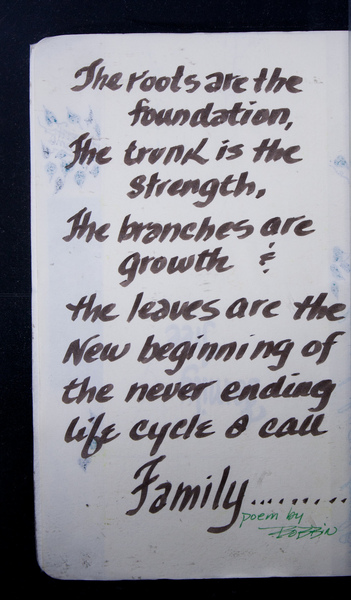 The roots are the
foundation,
The trunk is the
strength,
The branches are
growth &
the leaves are the
New beginning of
the never ending
life cycle & call
Family.........
poem by
Robbin